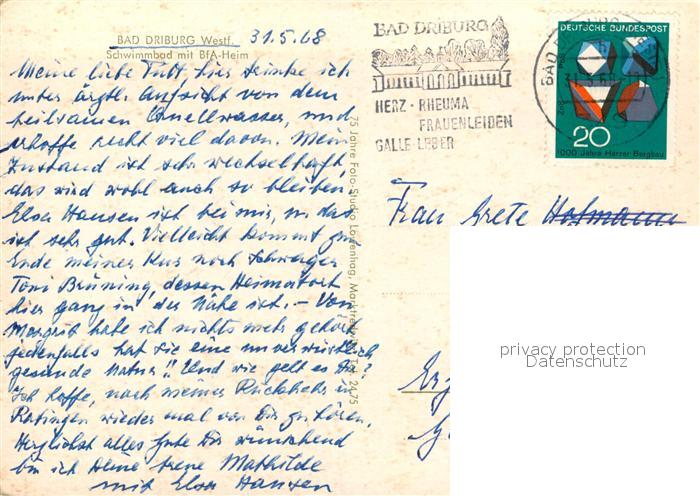 BAD DRIBURG Westf. 31.5.68
Schwimmbad mit BfA-Heim
Meine liebe Tutt, hier trinke ich
unter ärztl. Aufsicht von dem
heilsamen Quellwasser, und
erhoffe recht viel davon. Mein
Zustand ist sehr wechselhaft,
das wird wohl auch so bleiben.
Elsa Hansen ist bei mir, u. das
ist sehr gut. Vielleicht kommt zum
Ende meiner Kur noch Schwager
Toni Brüning, dessen Heimatort
hier ganz in der Nähe ist. – Von
Margrit habe ich nichts mehr gehört
jedenfalls hat sie eine unverwüstlich
gesunde Natur!! Und wie geht es Dir?
Ich hoffe, nach meiner Rückkehr in
Ratingen wieder mal von Dir zu hören.
Herzlichst alles Gute Dir wünschend
bin ich Deine treue Mathilde
mit Elsa Hansen
75 Jahre Foto-Studio Lowenhag,
24/75
BAD DRIBURG
HERZ · RHEUMA
FRAUENLEIDEN
GALLE · LEBER
DEUTSCHE BUNDESPOST
20
1000 Jahre Harzer Bergbau
BAD
Frau Grete Hofmann
privacy protection
Datenschutz